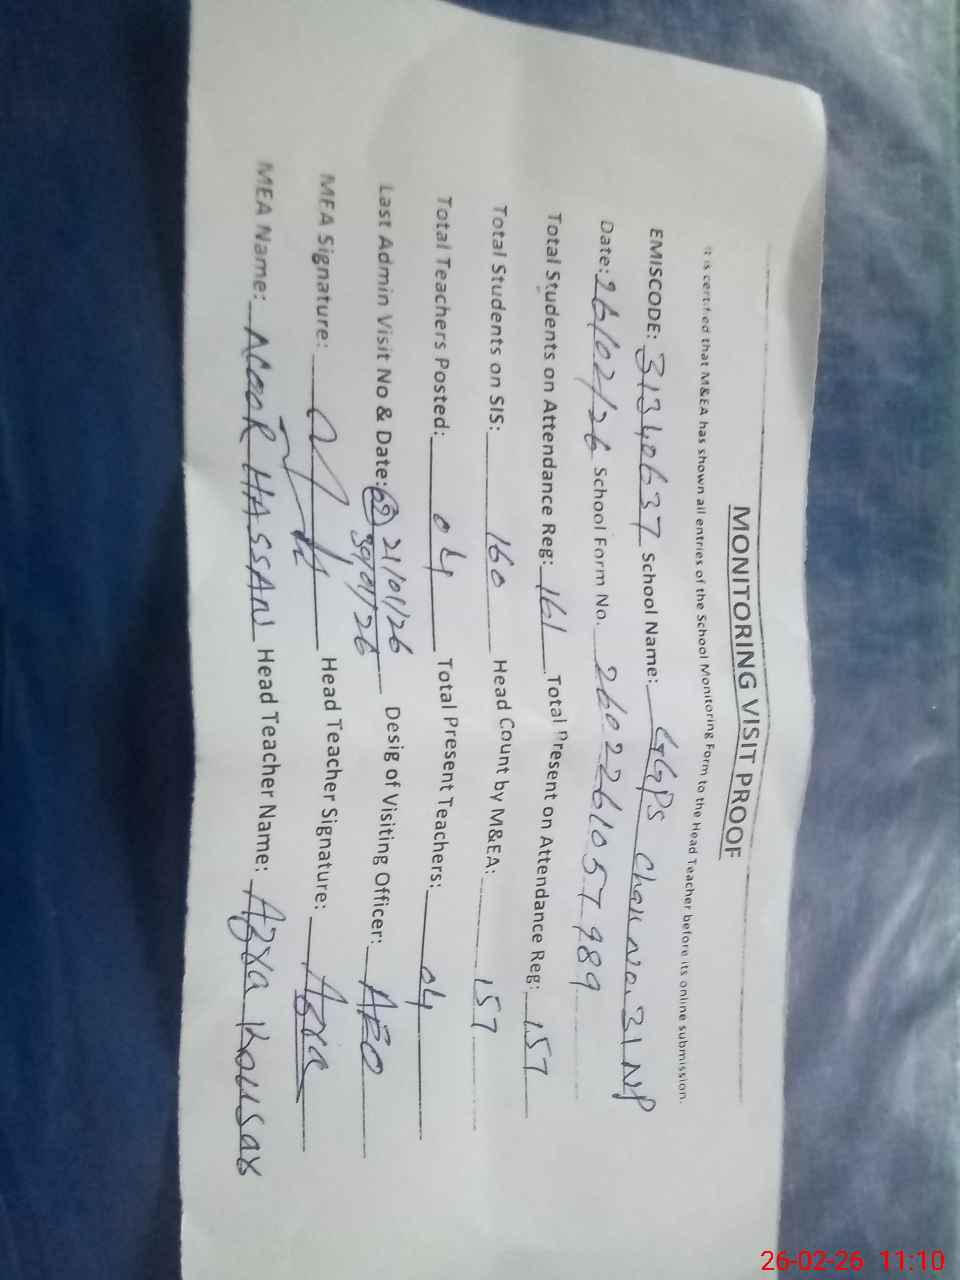 MONITORING VISIT PROOF
It is certified that M&EA has shown all entries of the School Monitoring Form to the Head Teacher before its online submission.
EMISCODE: 31340637 School Name: GGPS Chak No. 31 NP
Date: 26/02/26 School Form No. 2602261057989
Total Students on Attendance Reg: 161 Total Present on Attendance Reg: 157
Total Students on SIS: 160 Head Count by M&EA: 157
Total Teachers Posted: 04 Total Present Teachers: 04
Last Admin Visit No & Date: 02 21/01/26 Desig of Visiting Officer: AEO
30/01/26
MEA Signature: Head Teacher Signature: Azra
MEA Name: HASSAN Head Teacher Name: Azra Kousar
26-02-26 11:10